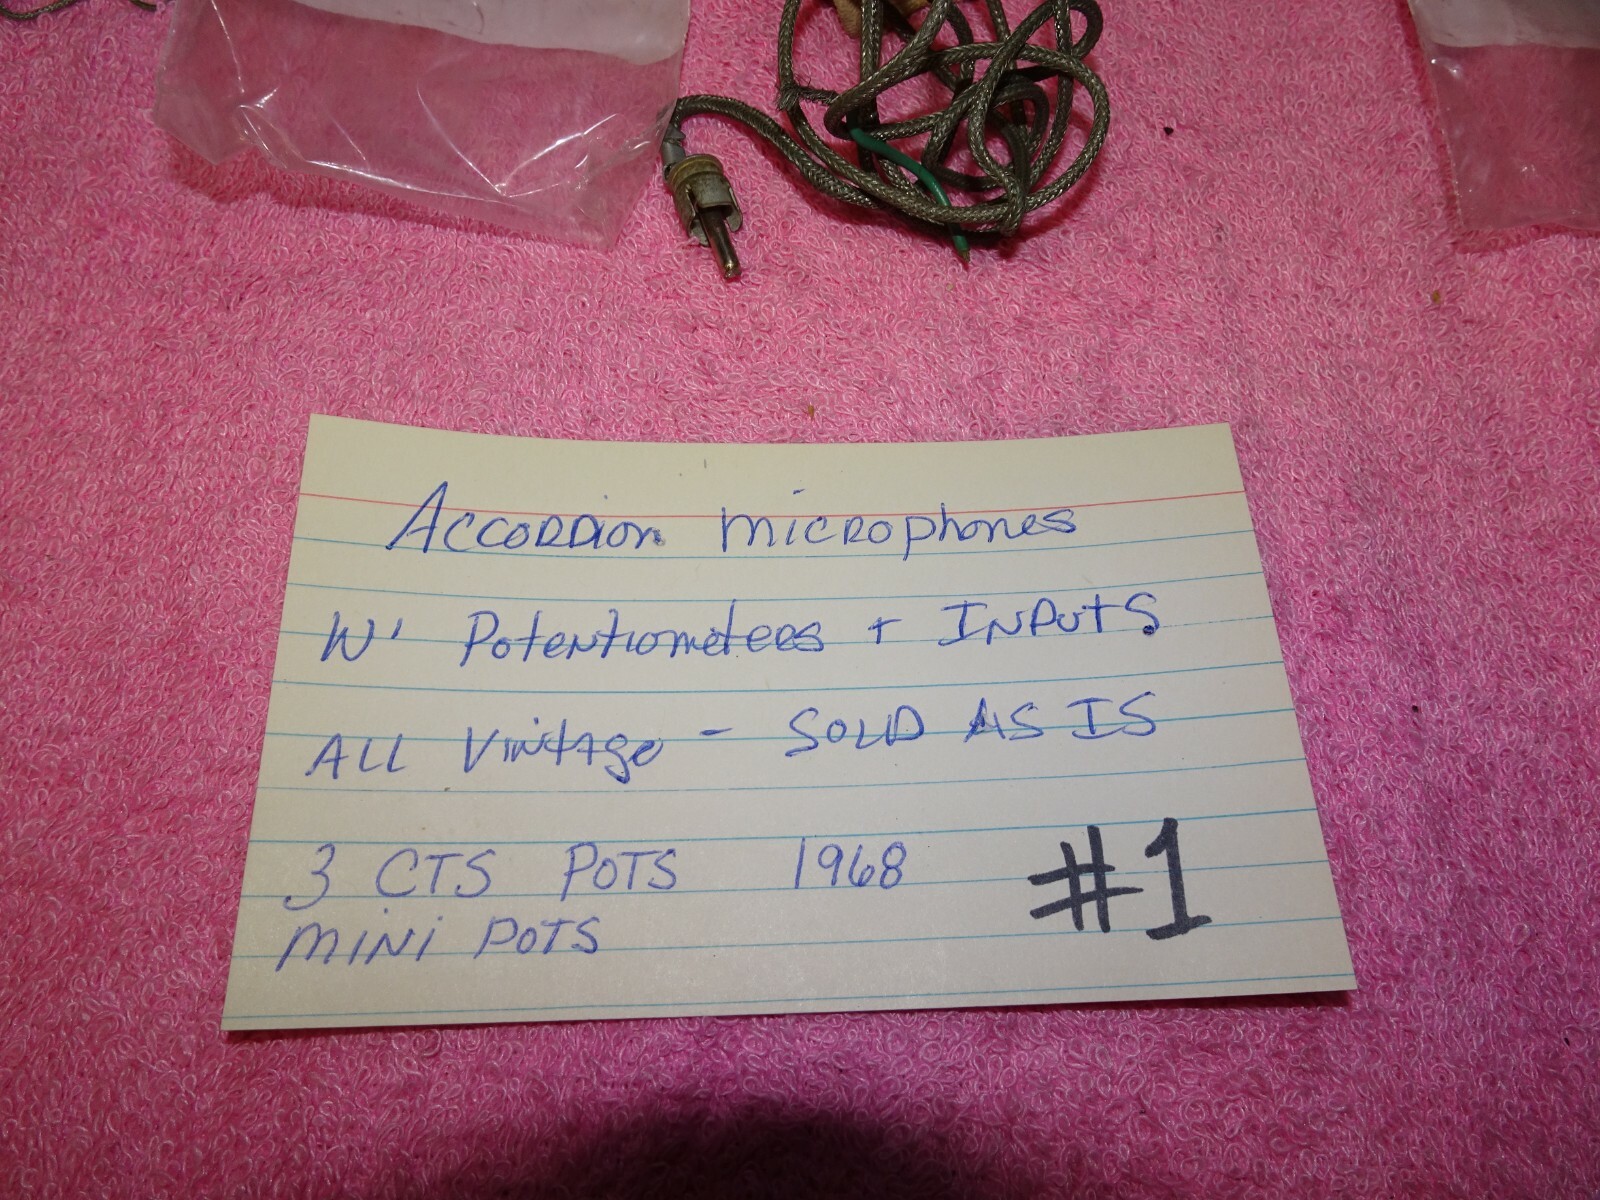 ACCORDION MICROPHONES
W' POTENTIOMETERS + INPUTS
ALL VINTAGE - SOLD AS IS
3 CTS POTS 1968
MINI POTS
#1